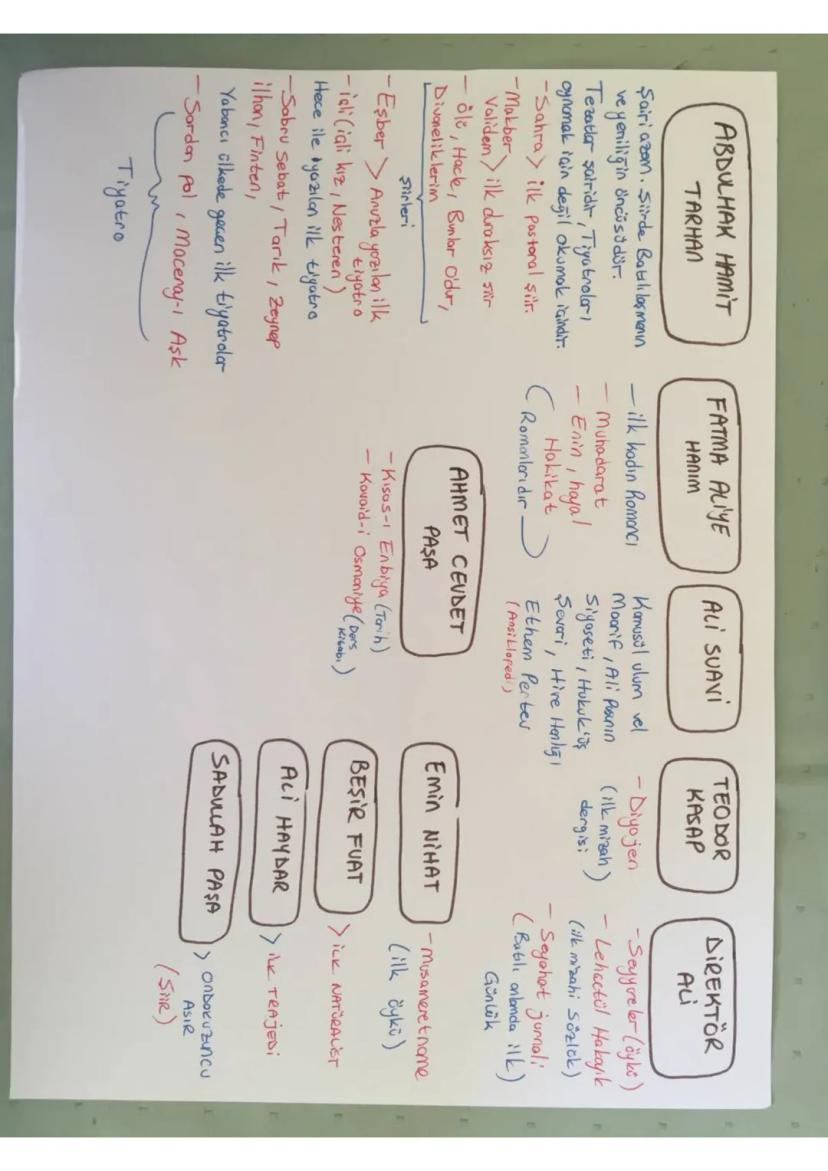 ABDULHAK HAMİT
TARHAN
Şairi azam. Şiirde Batılılaşmanın
ve yeniliğin öncüsüdür.
Tezatlar şairidir, Tiyatroları
oynamak için değil okumak içindir.
- Sahra > ilk pastoral şiir.
- Makber
Validem > ilk duraksız şiir
- Ölü, Hacle, Bunlar O'dur,
Divaneliklerim
şiirleri
- Eşber > Aruzla yazılan ilk
tiyatro
- içli (içli kız, Nesteren)
Hece ile yazılan ilk tiyatro
- Sabru Sebat, Tarık, Zeynep
ilhan, Finten,
Yabancı ülkede geçen ilk tiyatrolar
- Sardan pal, Macera-ı Aşk
Tiyatro
FATMA ALİYE
HANIM
- ilk kadın Romancı
- Muhadarat
- Enin, hayal
Hakikat
(Romanlarıdır)
AHMET CEVDET
PAŞA
- Kısas-ı Enbiya (Tarih)
- Kavaid-i Osmaniye (Ders
Kitabı)
ALİ SUAVİ
Kamusül ulum vel
Maarif, Ali Paşanın
Siyaseti, Hukuk'üş
Şevari, Hive Hanlığı
Ethem Pertev
(Ansiklopedi)
TEODOR
KASAP
- Diyojen
(ilk mizah
dergisi)
DİREKTÖR
ALİ
- Seyyareler (öykü)
- Lehcetül Hakayık
(ilk mizahi Sözlük)
- Seyahat jurnali
(Batılı anlamda ilk
Günlük)
Emin NİHAT
- Musameretname
(ilk öykü)
BEŞİR FUAT
> İLK NATÜRALİST
ALİ HAYDAR
> İLK TRAJEDİ
SADULLAH PAŞA
> ONDOKUZUNCU
ASIR
(ŞİİR)